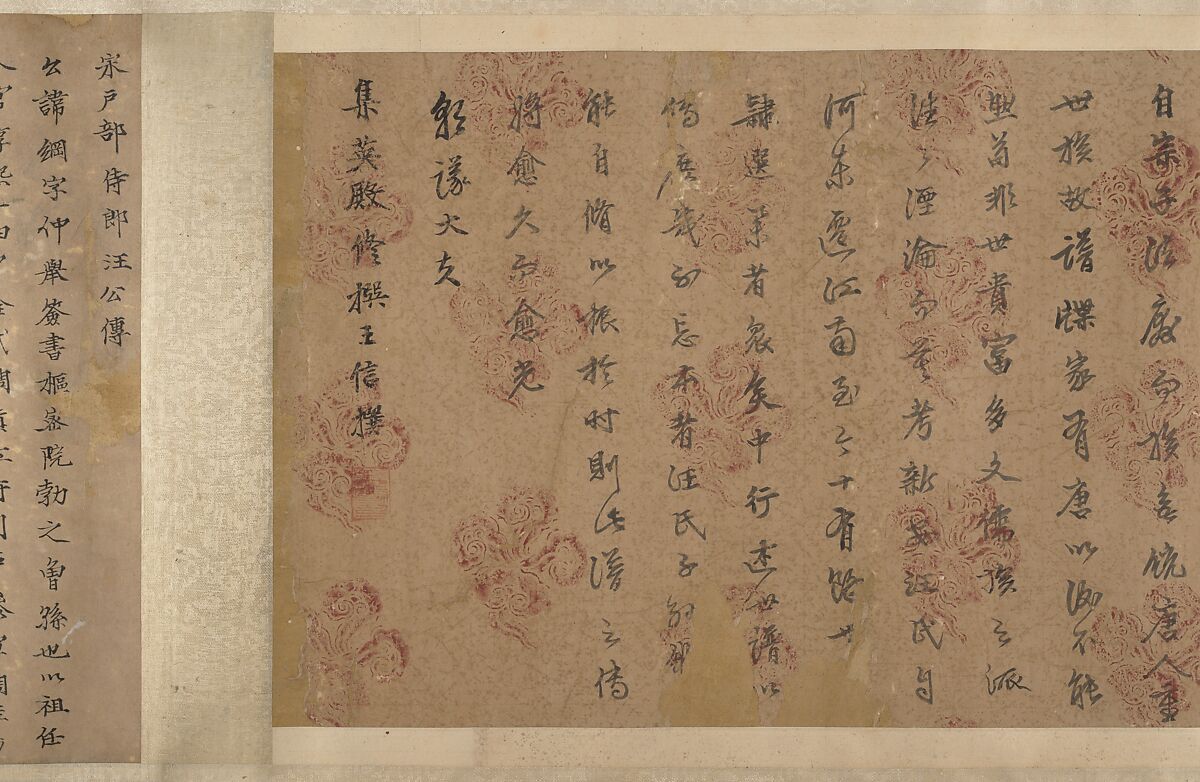 自宗子法廢而族無統唐人重
世族故譜牒家有唐以後不能
然苟非世貴富多文儒族之派
淪而莫考新安汪氏自
河東遷江南至今十有餘世
隸選業者眾矣中行述世譜以
傳庶幾不忘本者汪氏子
能自脩以振於时則此譜之傳
將愈久而愈光
朝議大夫
集英殿修撰王信撰
宋戶部侍郎汪公傳
公諱綱字仲舉簽書樞密院勃之曾孫也以祖任